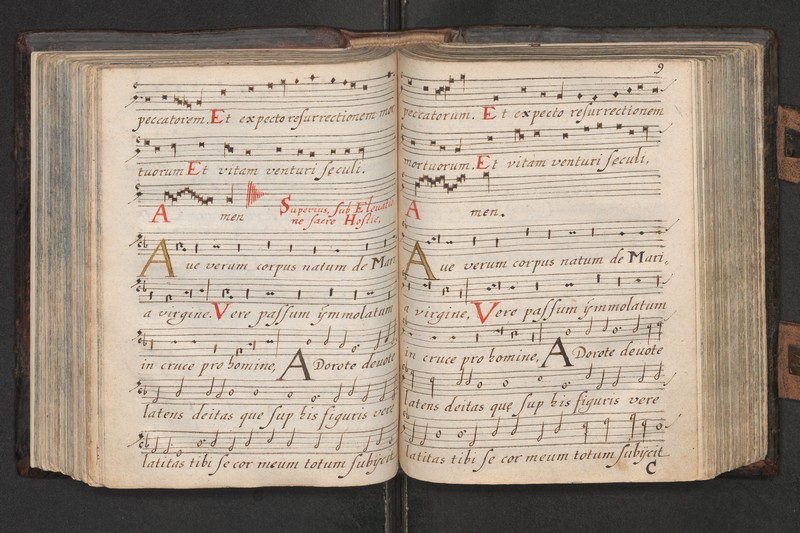 peccatorem. Et expecto resurrectionem mor
tuorum Et vitam venturi seculi.
A men
Superius, sub Eleuatio
ne sacre Hostie,
Aue verum corpus natum de Mari
a virgine. Vere passum ÿmmolatum
in cruce pro homine, ADorote deuote
latens deitas que sup his figuris vere
latitas tibi se cor meum totum subÿcit
9
peccatorum. Et expecto resurrectionem
mortuorum. Et vitam venturi seculi.
A men.
Aue verum corpus natum de Mari,
a virgine, Vere passum ÿmmolatum
in cruce pro homine, ADorote deuote
latens deitas quę sup his figuris vere
latitas tibi se cor meum totum subÿcit
C